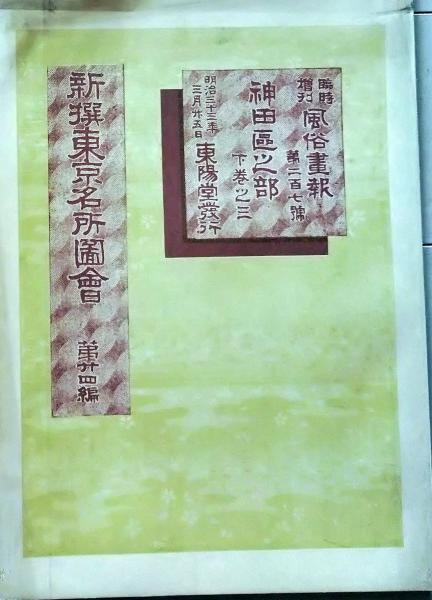 臨時增刊 風俗畫報 第二百七號
神田區之部 下卷之三
明治三十三年三月廿五日 東陽堂發行
新撰東京名所圖會 第廿四編